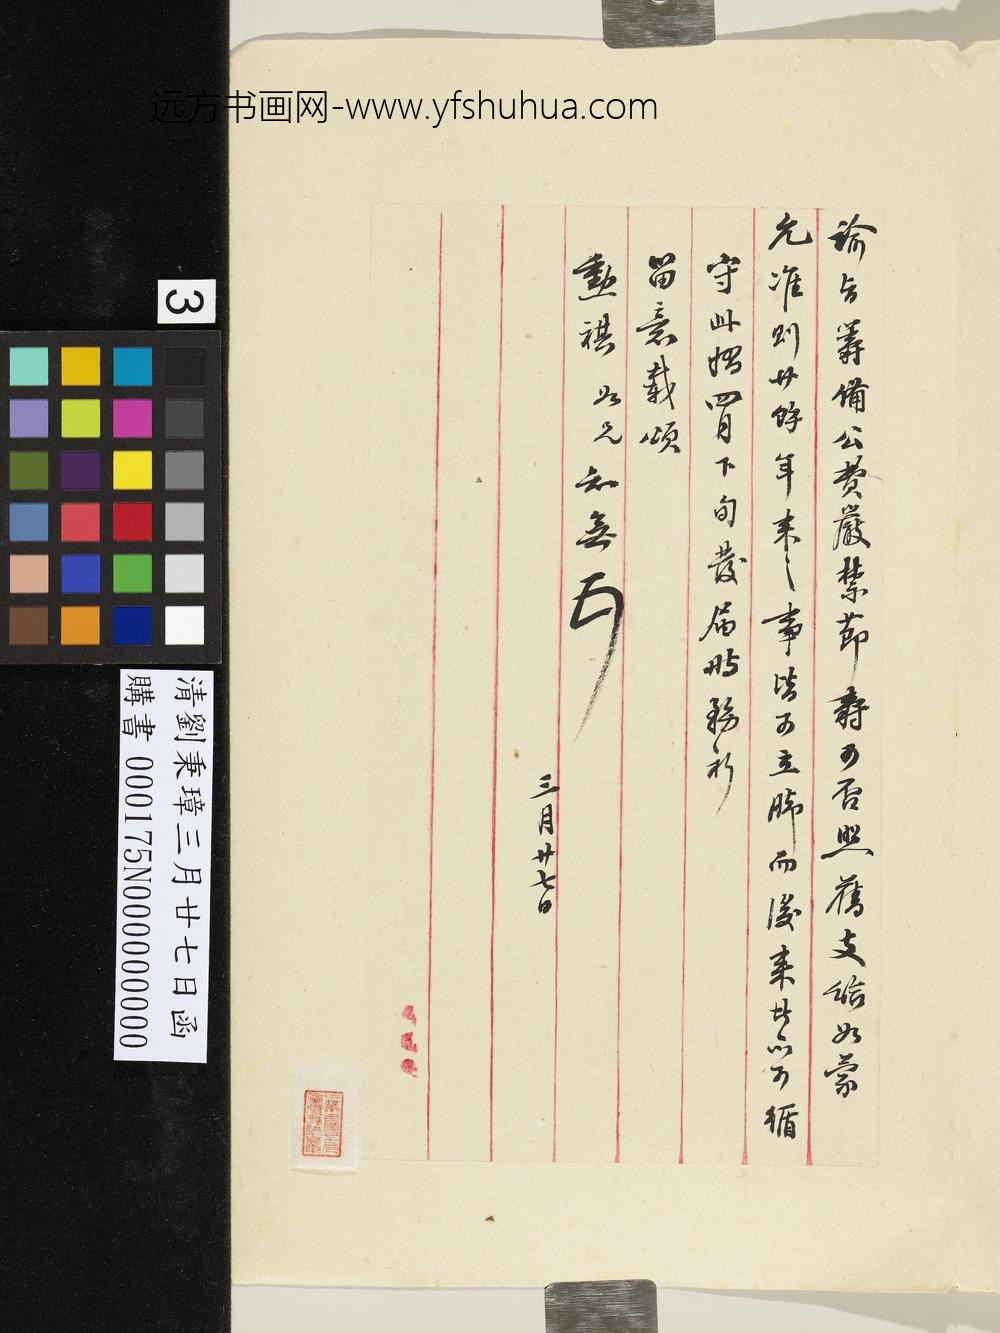 远方书画网-www.yfshuhua.com
諭旨籌備公費嚴禁節壽可否照舊支給如蒙
允准則廿餘年來之事皆可立腳而後來者亦可循
守此摺四月下旬發屆時務祈
留意載頌
勳祺 如兄 知無
三月廿七日
3
清劉秉璋三月廿七日函
購書 000175N000000000